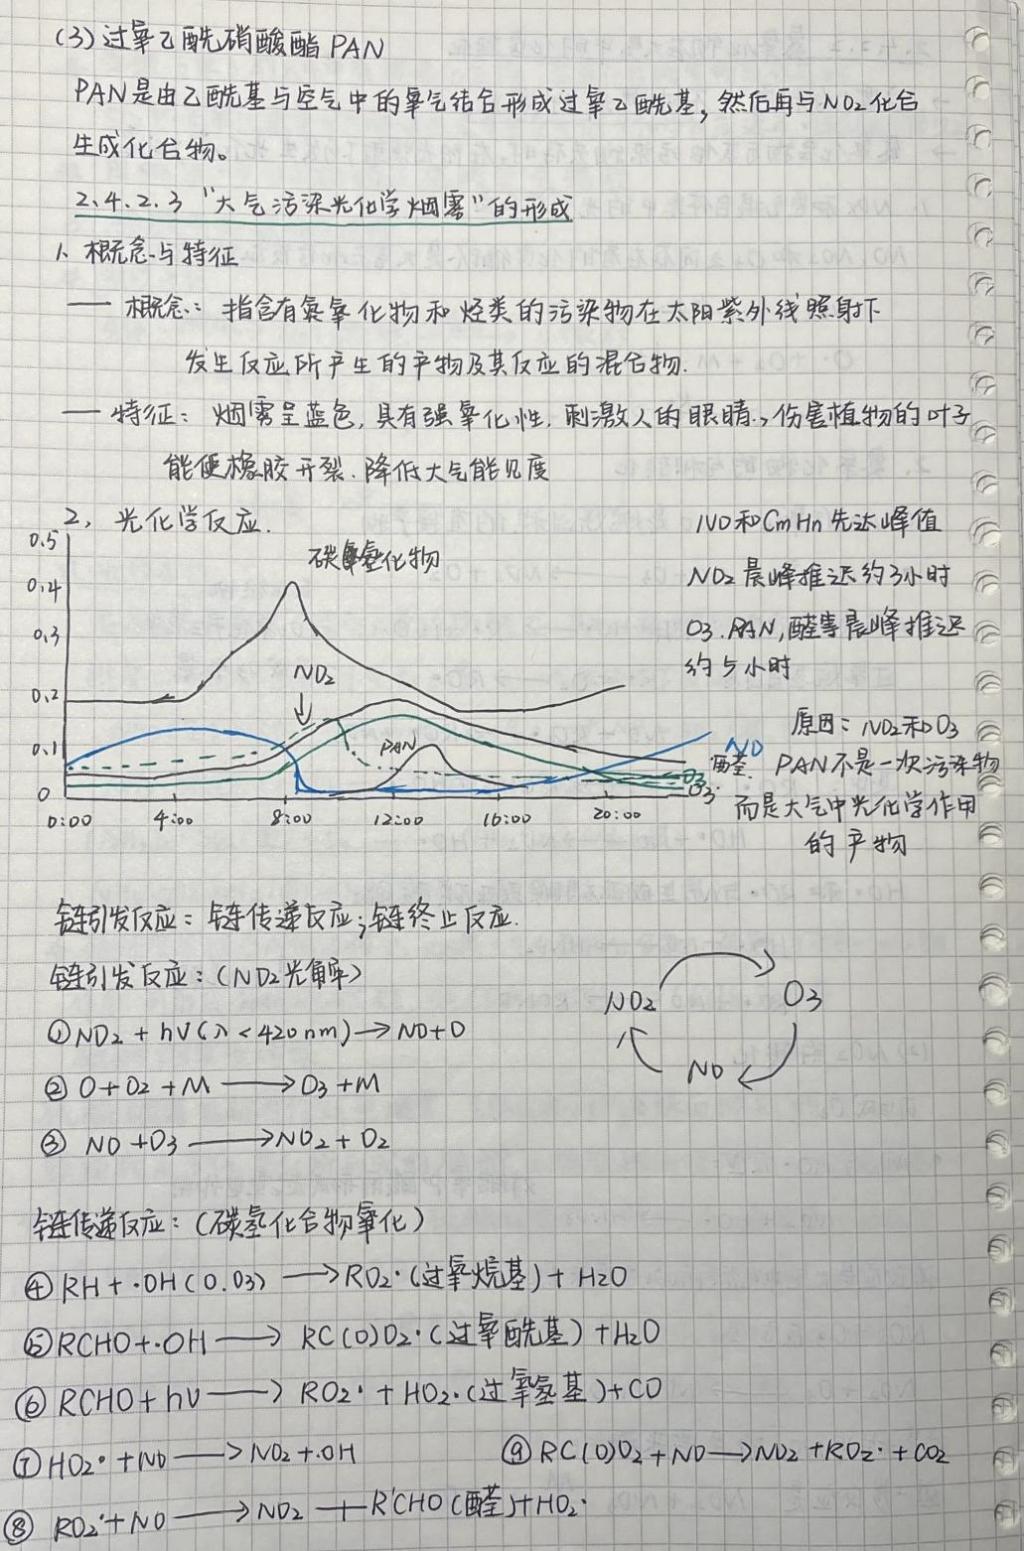 (3) 过氧乙酰硝酸酯 PAN
PAN是由乙酰基与空气中的氧气结合形成过氧乙酰基,然后再与NO2化合
生成化合物。
2.4.2.3 "大气污染光化学烟雾"的形成
1、概念与特征
— 概念: 指含有氮氧化物和烃类的污染物在太阳紫外线照射下
发生反应所产生的产物及其反应的混合物.
— 特征: 烟雾呈蓝色,具有强氧化性,刺激人的眼睛,伤害植物的叶子
能使橡胶开裂.降低大气能见度
2, 光化学反应.
NO和CmHn先达峰值
NO2晨峰推迟约3小时
O3.PAN,醛等晨峰推迟
约5小时
原因: NO2和O3
醛. PAN不是一次污染物
而是大气中光化学作用
的产物
0.5
0.4
0.3
0.2
0.1
0
碳氢化物
NO2
PAN
NO
O3
O3
0:00 4:00 8:00 12:00 16:00 20:00
链引发反应: 链传递反应;链终止反应.
链引发反应:(NO2光解)
①NO2 + hV(λ<420nm)→NO+O
② O+O2+M→O3+M
③ NO+O3→NO2+O2
NO2 O3
NO
链传递反应:(碳氢化合物氧化)
④RH+·OH(0.03)→RO2·(过氧烷基)+H2O
⑤RCHO+·OH→RC(O)O2·(过氧酰基)+H2O
⑥RCHO+hV→RO2·+HO2·(过氧氢基)+CO
⑦HO2·+NO→NO2+·OH ⑨RC(O)O2+NO→NO2+RO2·+CO2
⑧ RO2·+NO→NO2+R'CHO(醛)+HO2·